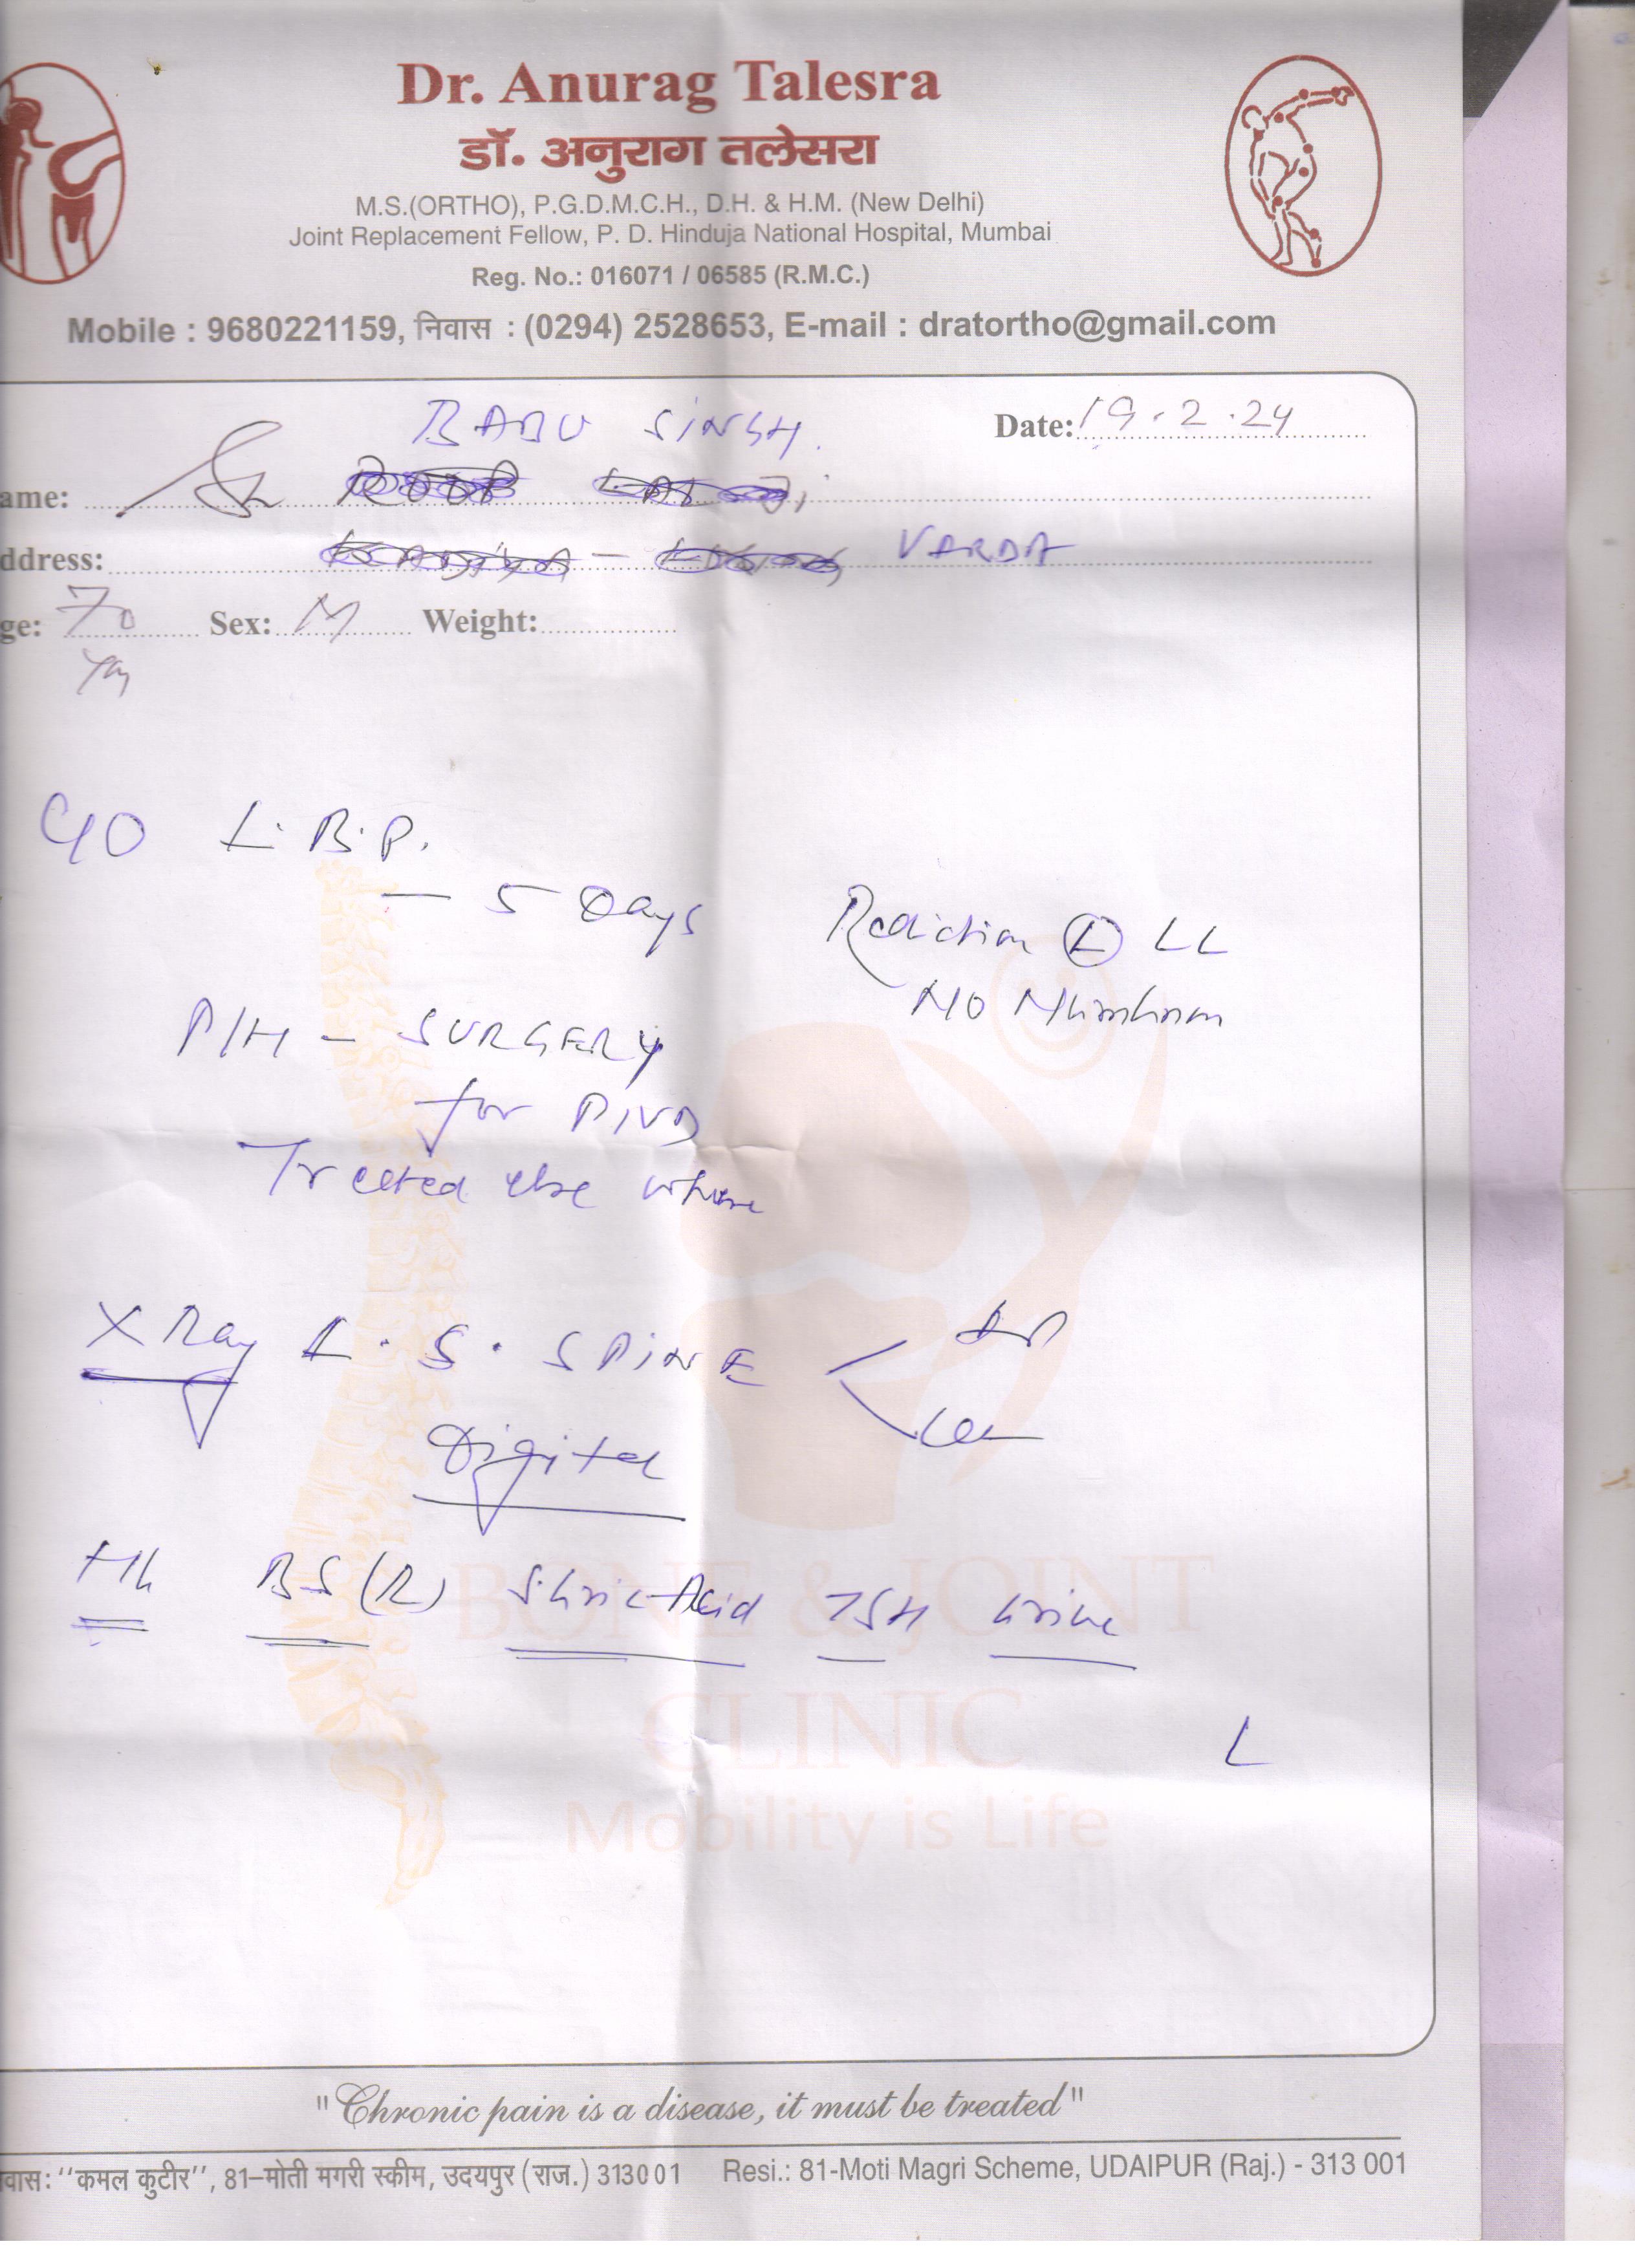 Dr. Anurag Talesra
डॉ. अनुराग तलेसरा
M.S.(ORTHO), P.G.D.M.C.H., D.H. & H.M. (New Delhi)
Joint Replacement Fellow, P. D. Hinduja National Hospital, Mumbai
Reg. No.: 016071 / 06585 (R.M.C.)
Mobile : 9680221159, निवास : (0294) 2528653, E-mail : dratortho@gmail.com
BABU SINGH. Date: 19.2.24
ame:
ddress: VARDA
ge: 70 Sex: M Weight:
C/O L.B.P.
- 5 Days
Radiction (L) LL
NO
P/H - SURGERY
for PIVD
Treated else where
X Ray L.S. SPINE < AP
Lat
Digital
Hb BS(R) S.Uric Acid TSH Urine
BONE & JOINT
CLINIC
L
Mobility is Life
"Chronic pain is a disease, it must be treated"
वास: ‘‘कमल कुटीर’’, 81–मोती मगरी स्कीम, उदयपुर (राज.) 313001 Resi.: 81-Moti Magri Scheme, UDAIPUR (Raj.) - 313 001